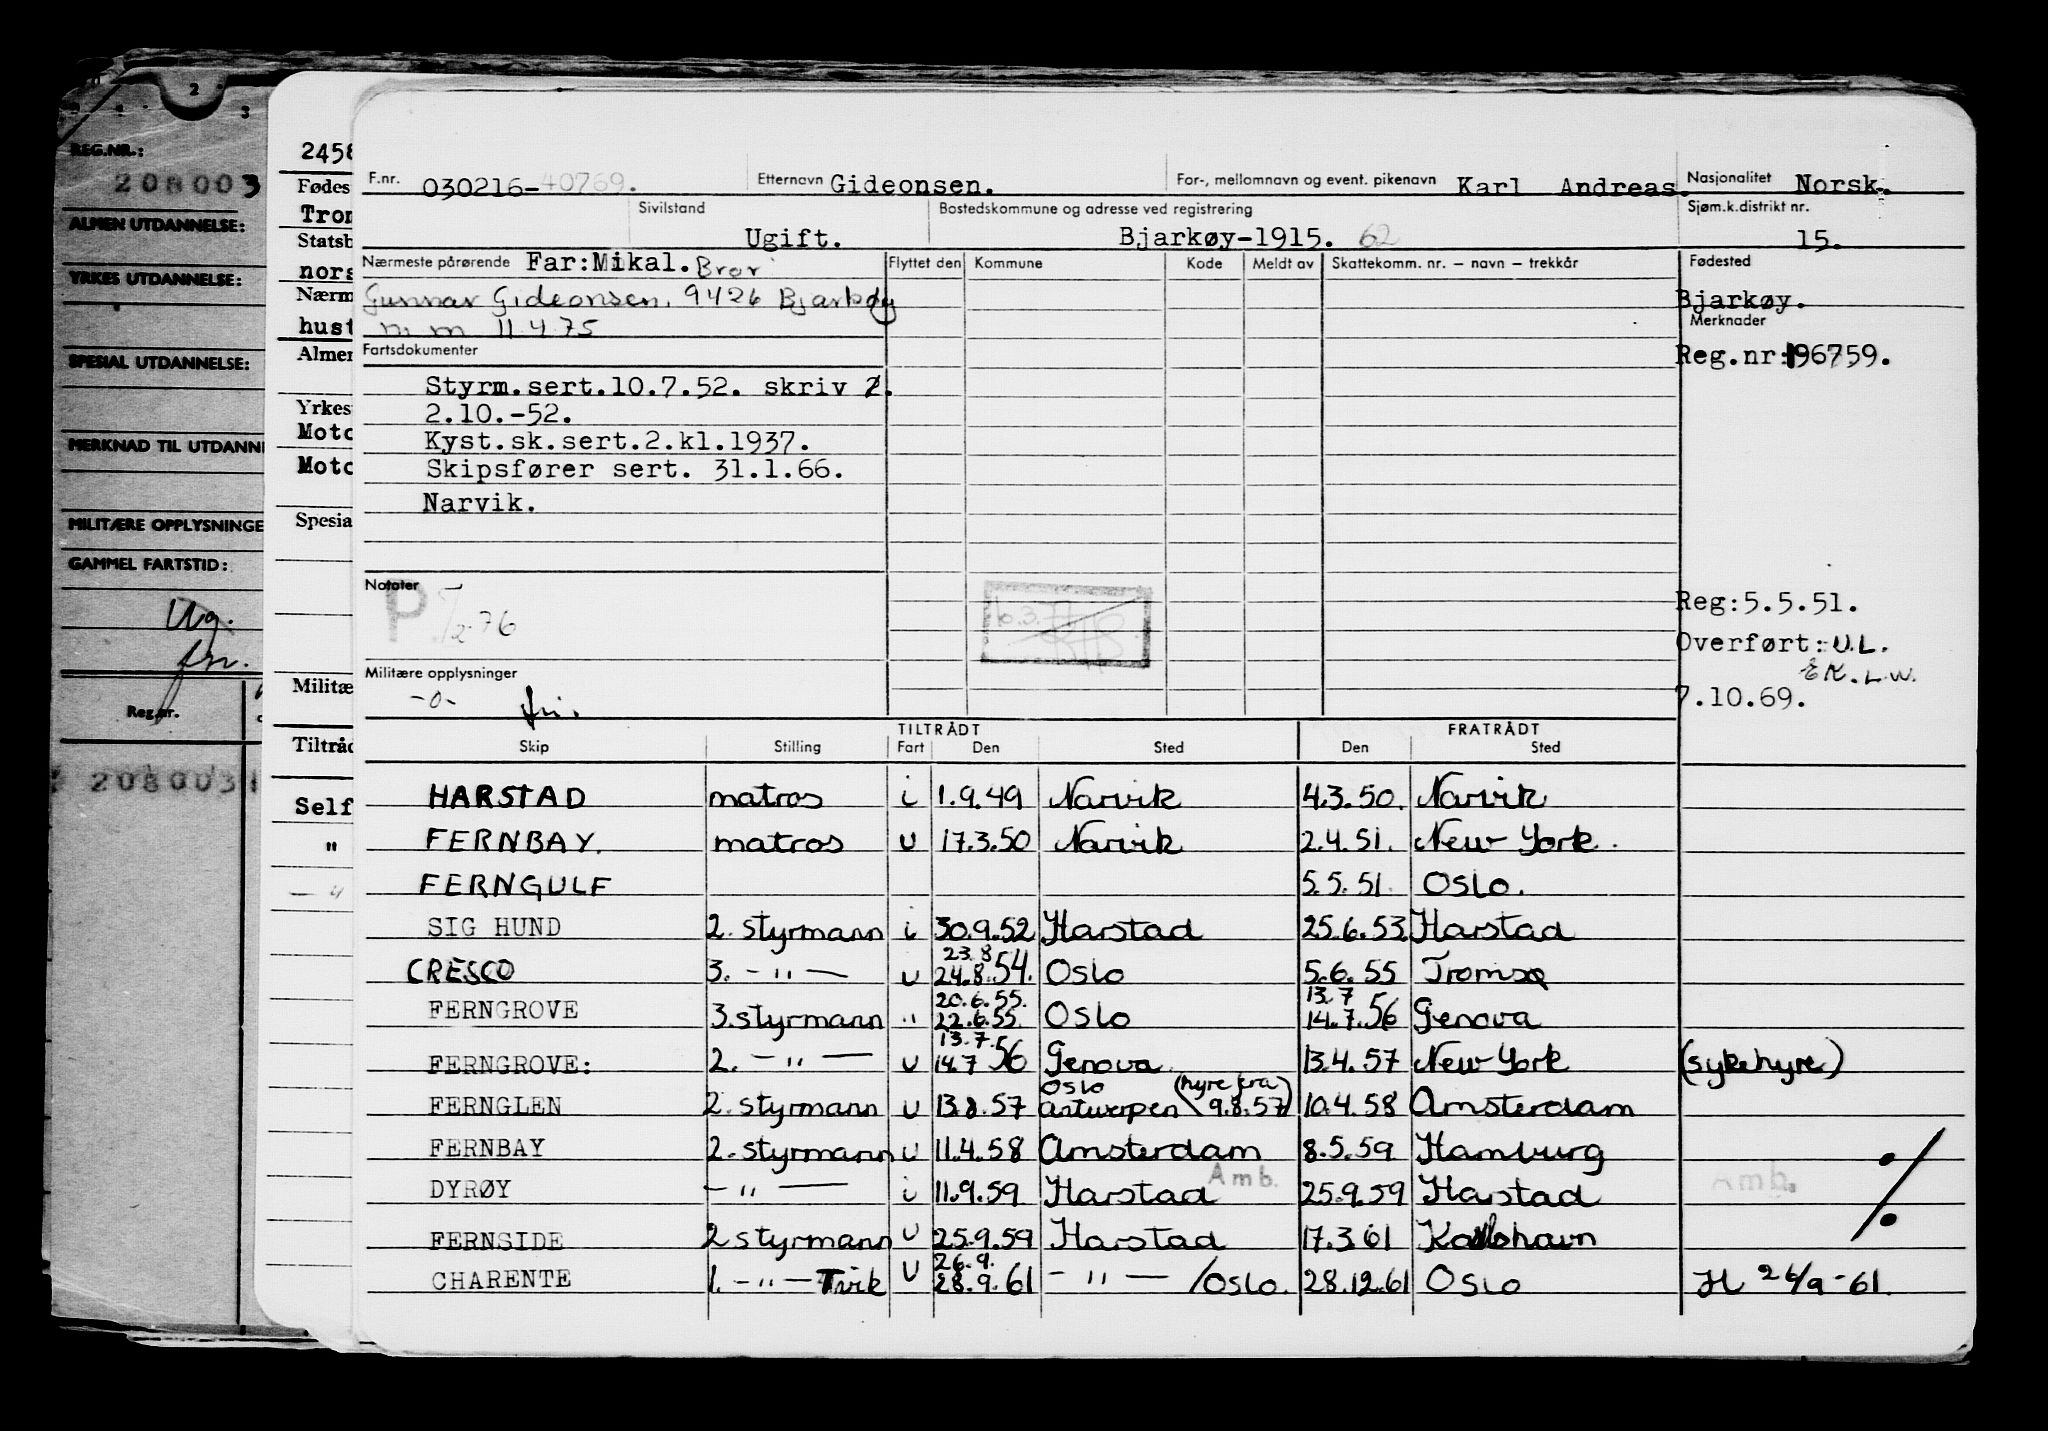 2
3
REG.NR.:
208003
ALMEN UTDANNELSE:
YRKES UTDANNELSE:
SPESIAL UTDANNELSE:
MERKNAD TIL UTDANN
MILITÆRE OPPLYSNINGE
GAMMEL FARTSTID:
Ug.
fri.
Reg.nr.
208003
2458
Fødes
Tron
Statsb
nors
Nærm
hust
Almer
Yrkes
Moto
Moto
Spesia
Militæ
Tiltråd
Self
"
— " 
F.nr. 030216-40769. Etternavn Gideonsen. For-, mellomnavn og event. pikenavn Karl Andreas. Nasjonalitet Norsk.
Sivilstand Ugift. Bostedskommune og adresse ved registrering Bjarkøy-1915. 62 Sjøm.k.distrikt nr. 15.
Nærmeste pårørende Far:Mikal. Bror Flyttet den Kommune Kode Meldt av Skattekomm. nr. – navn – trekkår Fødested
Gunnar Gideonsen, 9426 Bjarkøy Bjarkøy.
n.m 11.4.75 Merknader
Fartsdokumenter Reg.nr:196759.
Styrm.sert.10.7.52. skriv 2.
2.10.-52.
Kyst.sk.sert.2.kl.1937.
Skipsfører sert. 31.1.66.
Narvik.
Notater
P 76
16.3.77
Reg:5.5.51.
Overført:-U.L.
EK. L.W.
7.10.69.
Militære opplysninger
-0- fri.
TILTRÅDT FRATRÅDT
Skip Stilling Fart Den Sted Den Sted
HARSTAD matros i 1.9.49 Narvik 4.3.50. Narvik
FERNBAY. matros u 17.3.50 Narvik 2.4.51. New York.
FERNGULF 5.5.51. Oslo.
SIG HUND 2. styrmann i 30.9.52 Harstad 25.6.53. Harstad
23.8
CRESCO 3. — " — u 24.8.54. Oslo 5.6.55 Tromsø
20.6.55. 13.7
FERNGROVE 3. styrmann " 22.6.55. Oslo 14.7.56 Genova
13.7.
FERNGROVE: 2. — " — u 14.7 56 Genova 13.4.57 New York (sykehyre)
Oslo (hyre fra
FERNGLEN 2. styrmann u 13.8.57 Antwerpen 9.8.57) 10.4.58 Amsterdam
FERNBAY 2. styrmann u 11.4.58 Amsterdam 8.5.59 Hamburg
DYRØY — " — i 11.9.59 Harstad Amb. 25.9.59 Harstad Amb.
FERNSIDE 2 styrmann u 25.9.59 Harstad 17.3.61
26.9.
CHARENTE 1. — " — Tvik u 28.9.61 — " — /Oslo. 28.12.61 Oslo H 26/9-61.